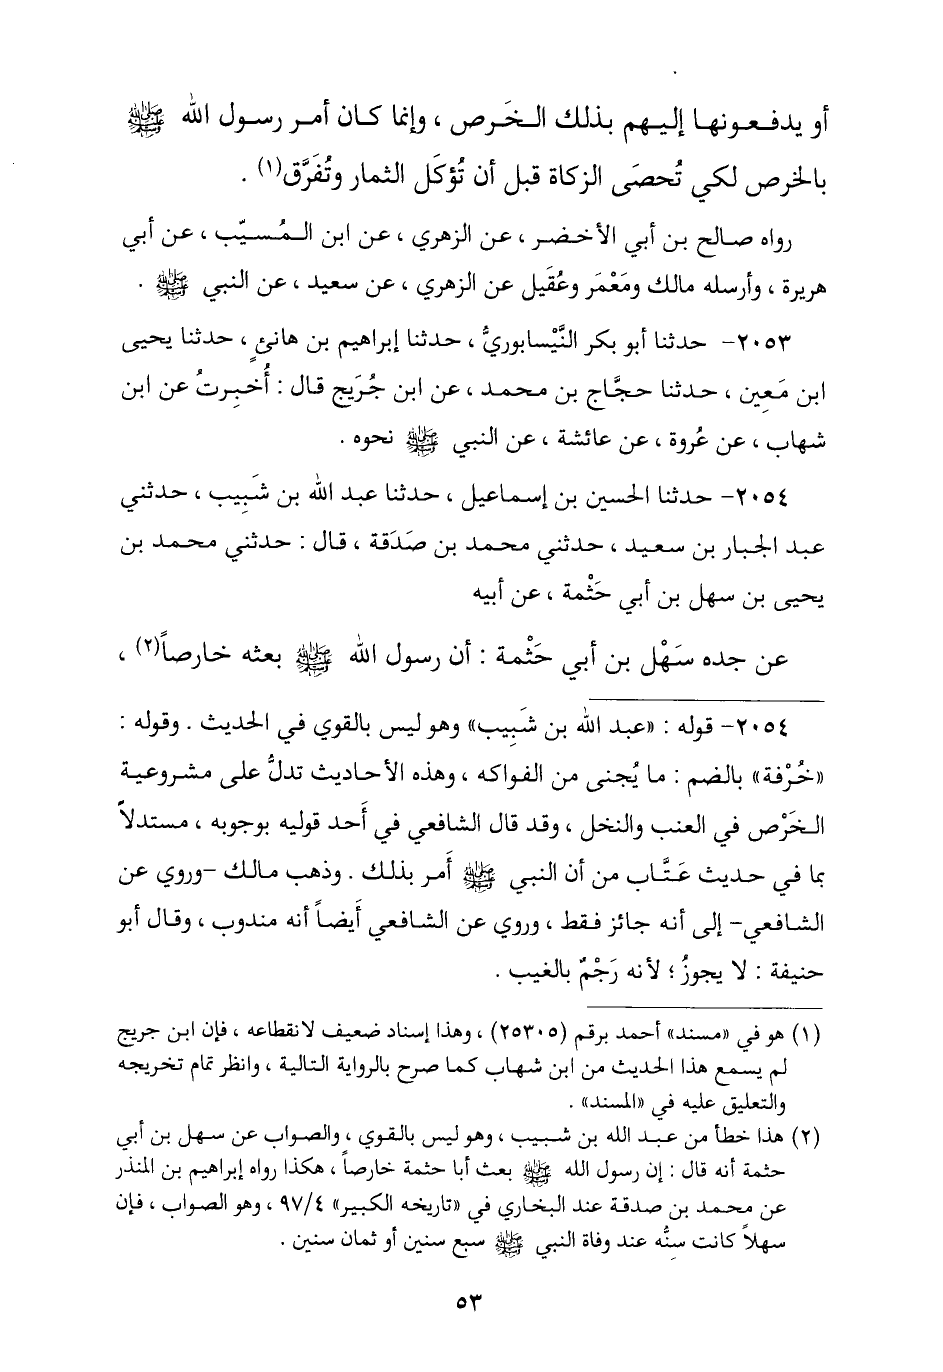 أو يدفعونها إليهم بذلك الخَرص ، وإنما كان أمر رسول الله ﷺ
بالخرص لكي تُحصَى الزكاة قبل أن تُؤكَل الثمار وتُفَرَّق(١) .
رواه صالح بن أبي الأخضر ، عن الزهري ، عن ابن المُسيّب ، عن أبي
هريرة ، وأرسله مالك ومَعْمَر وعُقَيل عن الزهري ، عن سعيد ، عن النبي ﷺ .
٢٠٥٣- حدثنا أبو بكر النَّيْسابوريُّ ، حدثنا إبراهيم بن هانئٍ ، حدثنا يحيى
ابن مَعِين ، حدثنا حجَّاج بن محمد ، عن ابن جُرَيج قال : أُخبِرتُ عن ابن
شهاب ، عن عُروة ، عن عائشة ، عن النبي ﷺ نحوه .
٢٠٥٤- حدثنا الحسين بن إسماعيل ، حدثنا عبد الله بن شَبِيب ، حدثني
عبد الجبار بن سعيد ، حدثني محمد بن صَدَقة ، قال : حدثني محمد بن
يحيى بن سهل بن أبي حَثْمة ، عن أبيه
عن جده سَهْل بن أبي حَثْمة : أن رسول الله ﷺ بعثه خارصاً(٢) ،
٢٠٥٤- قوله : «عبد الله بن شَبِيب» وهو ليس بالقوي في الحديث . وقوله :
«خُرْفة» بالضم : ما يُجنى من الفواكه ، وهذه الأحاديث تدلُّ على مشروعية
الخَرْص في العنب والنخل ، وقد قال الشافعي في أَحد قوليه بوجوبه ، مستدلاًّ
بما في حديث عَتَّاب من أن النبي ﷺ أَمر بذلك . وذهب مالك -وروي عن
الشافعي- إلى أنه جائز فقط ، وروي عن الشافعي أَيضاً أنه مندوب ، وقال أبو
حنيفة : لا يجوزُ ؛ لأنه رَجْمٌ بالغيب .
(١) هو في «مسند» أحمد برقم (٢٥٣٠٥) ، وهذا إسناد ضعيف لانقطاعه ، فإن ابن جريج
لم يسمع هذا الحديث من ابن شهاب كما صرح بالرواية التالية ، وانظر تمام تخريجه
والتعليق عليه في «المسند» .
(٢) هذا خطأ من عبد الله بن شبيب ، وهو ليس بالقوي ، والصواب عن سهل بن أبي
حثمة أنه قال : إن رسول الله ﷺ بعث أبا حثمة خارصاً ، هكذا رواه إبراهيم بن المنذر
عن محمد بن صدقة عند البخاري في «تاريخه الكبير» ٩٧/٤ ، وهو الصواب ، فإن
سهلاً كانت سنُّه عند وفاة النبي ﷺ سبع سنين أو ثمان سنين .
٥٣